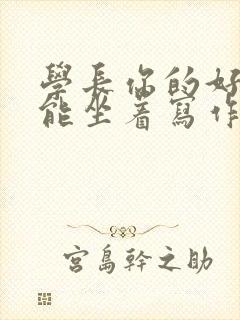 學長你的好
能坐着寫作
宮島幹之助